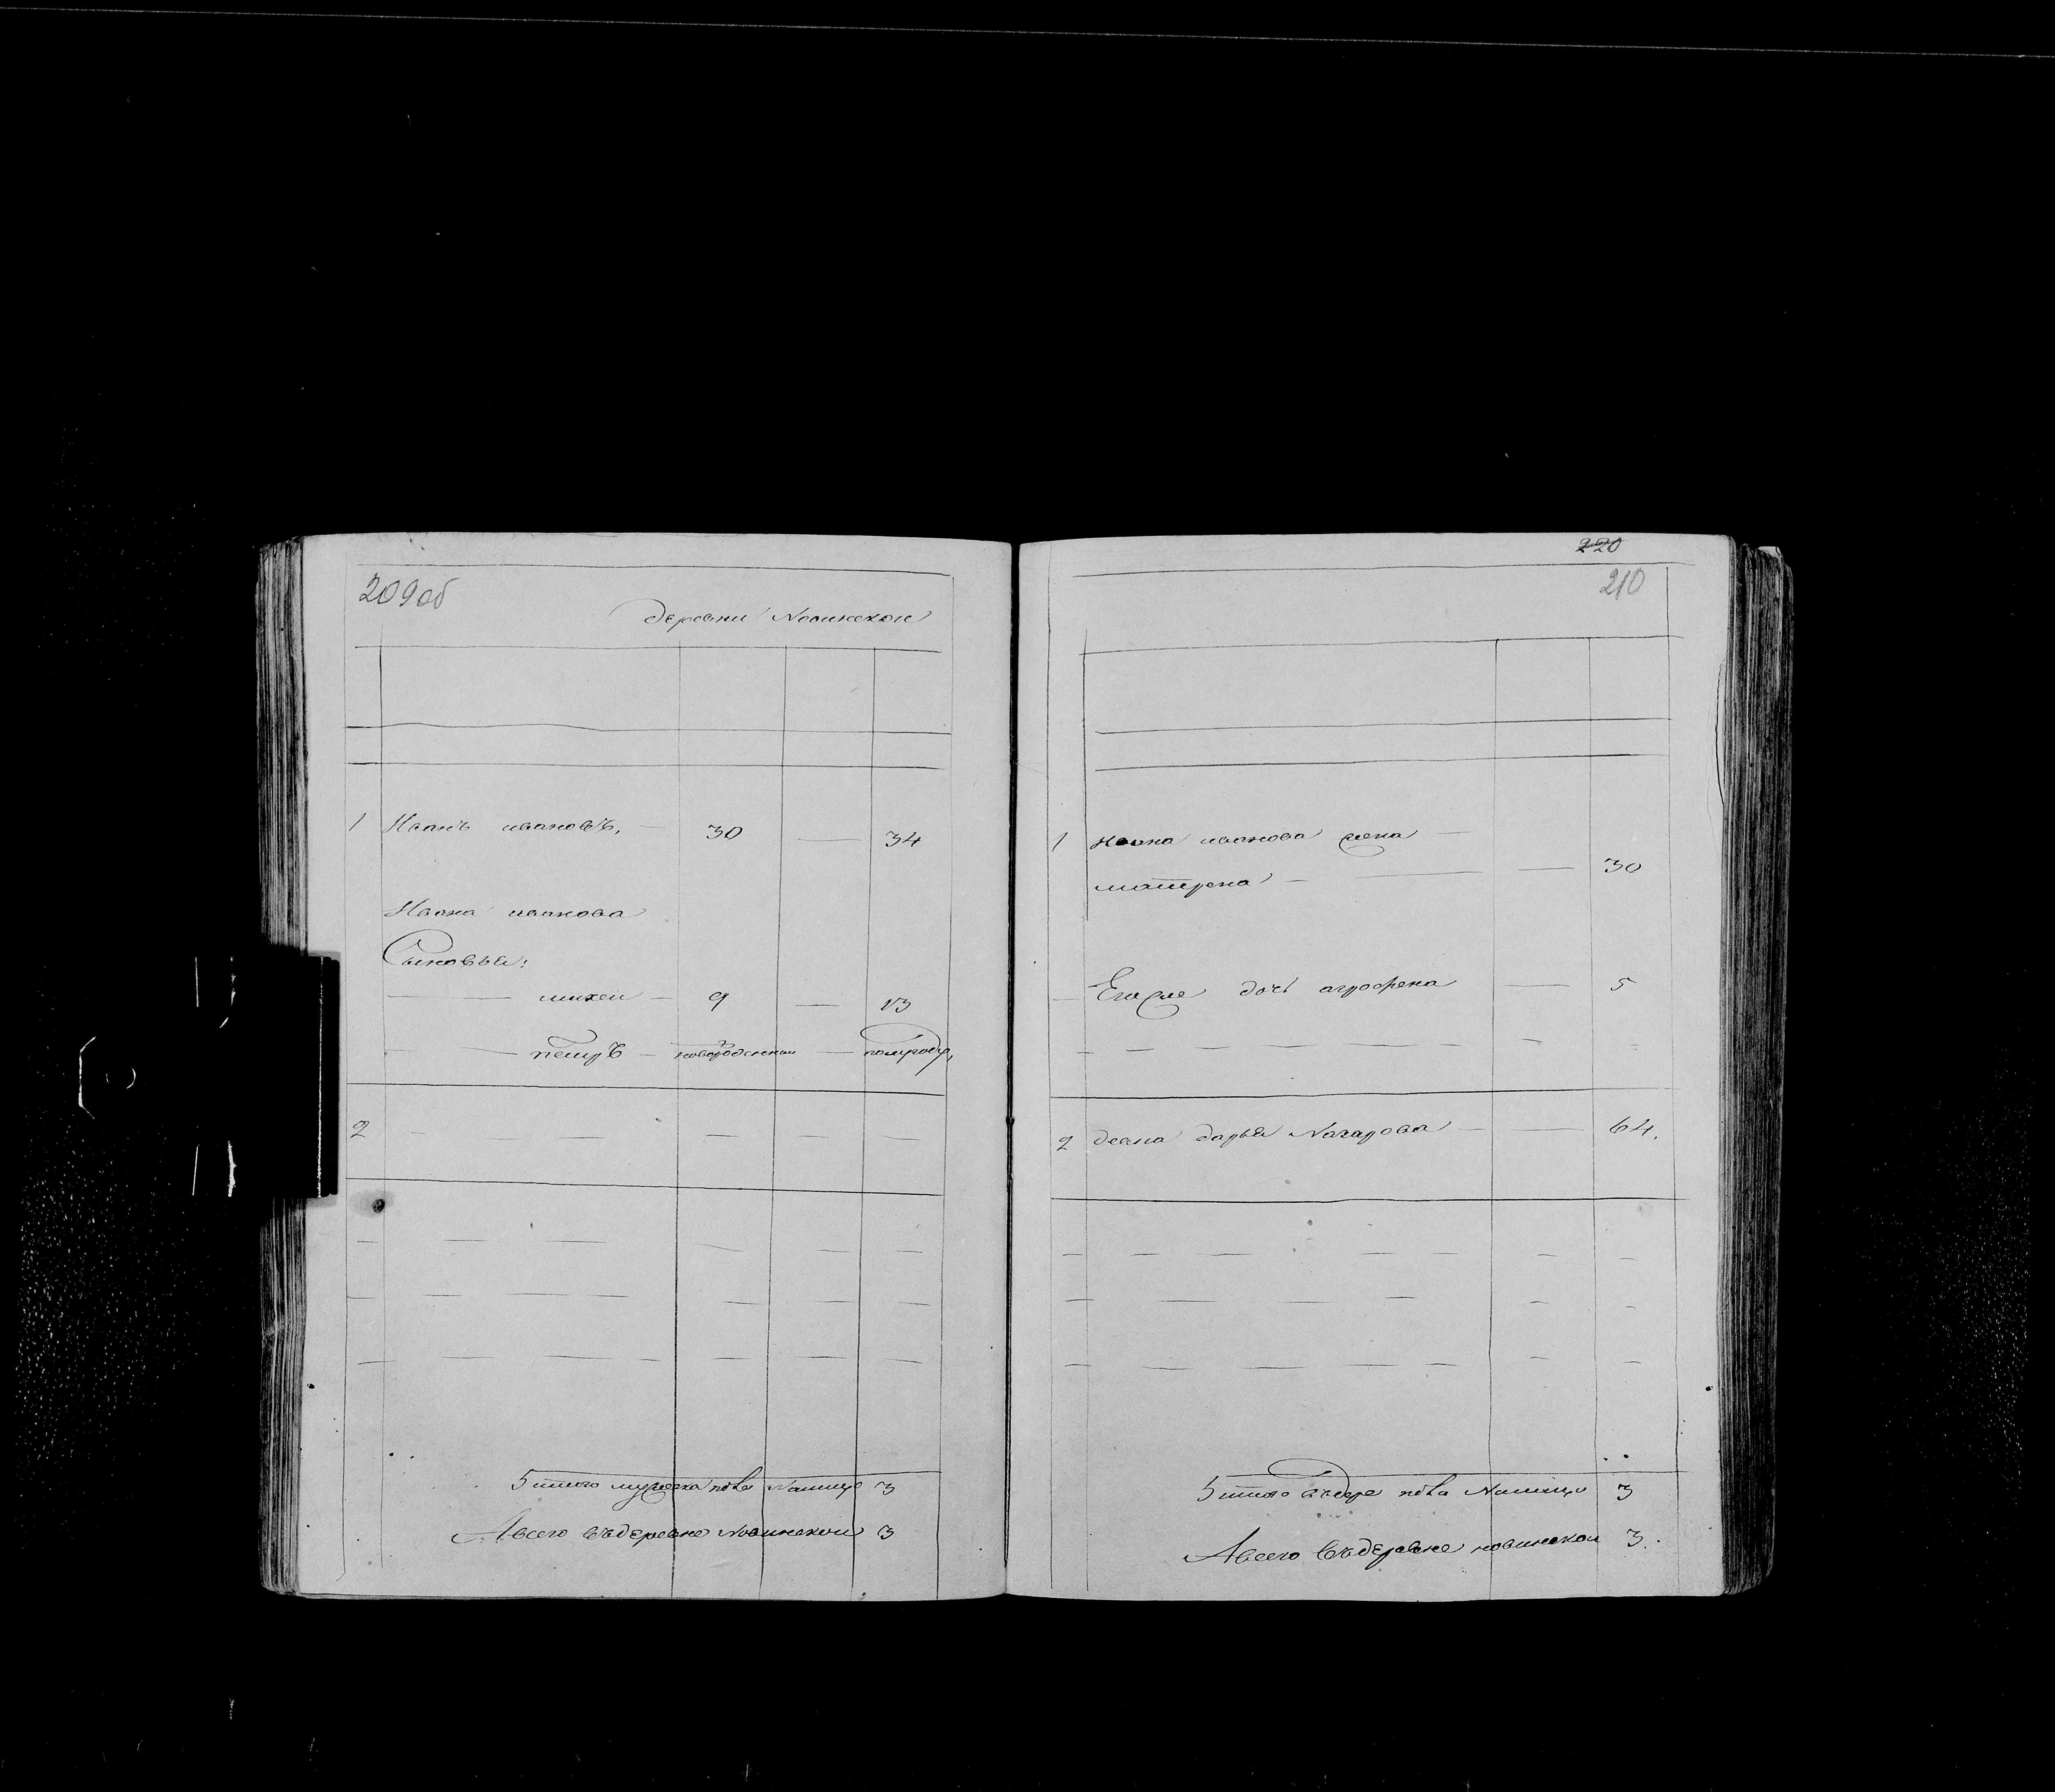 209об
деревни Новинской
1 Иванъ ивановъ, — 30 — 34
Ивана иванова
Сыновья:
— михеи — 9 — 13
— петръ — новорожденной — полгоду,
2 — — — — — —
Итого мужеска пола Налицо 3
А всего въ деревне Новинскои 3
220
210
1 ивана иванова жена —
матрена — — — 30
— Егоже дочь агрофена — 5
2 девка дарья Назарова — — 64.
Итого женска пола Налицо 3
А всего въ деревне новинскои 3.